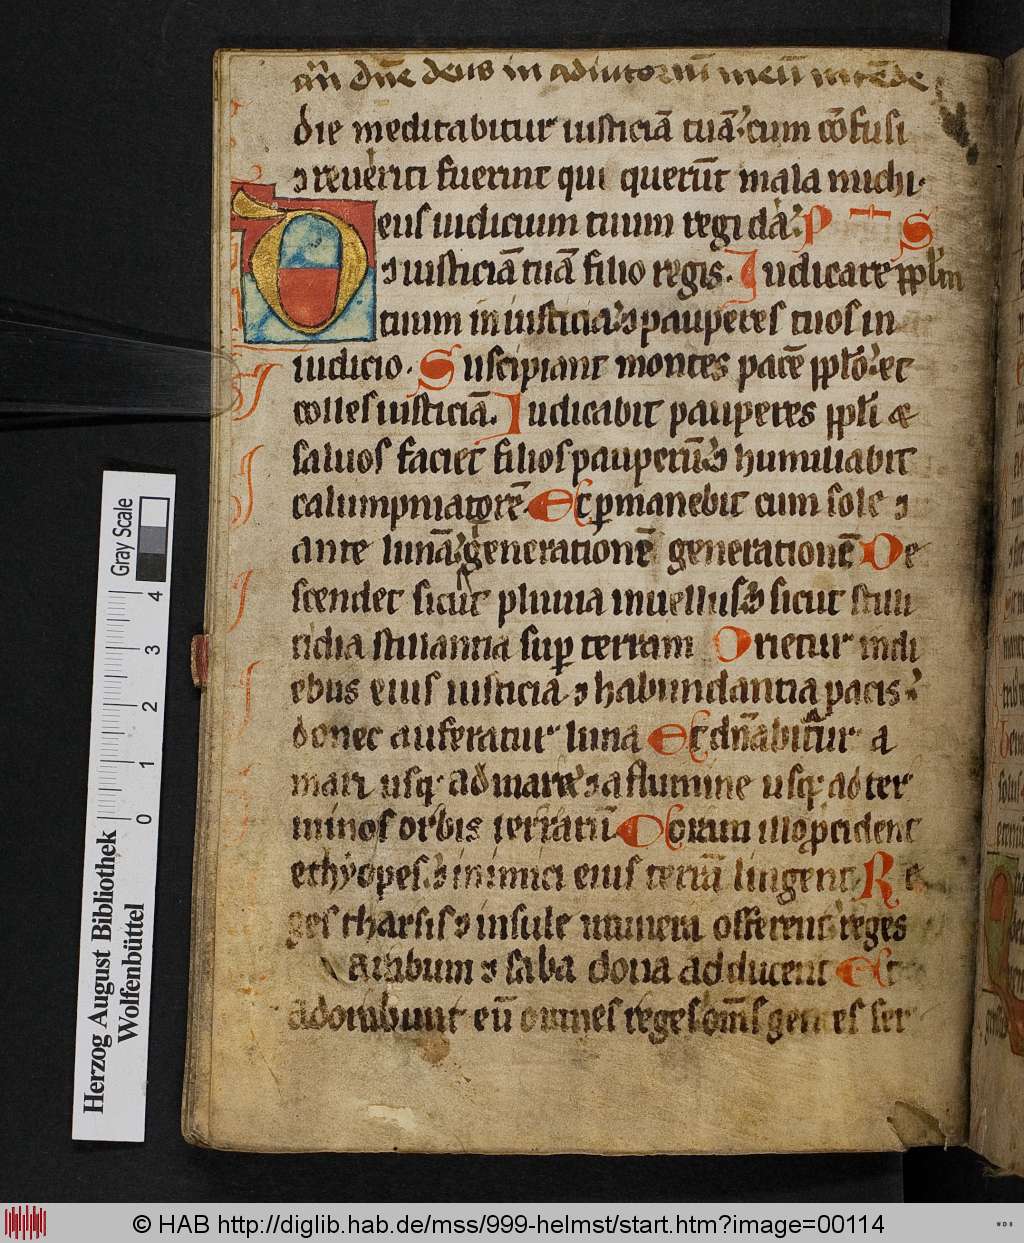 an̄ dn̄e deus in adiutoriū meū intēde
die meditabitur iusticiā tuā: cum cōfusi
⁊ reueriti fuerint qui querūt mala michi.
Deus iudicium tuum regi da: P S
⁊ iusticiā tuā filio regis. Iudicare pp̄lm
tuum in iusticia: ⁊ pauperes tuos in
iudicio. Suscipiant montes pacē pp̄lo: et
colles iusticiā. Iudicabit pauperes pp̄li &
saluos faciet filios pauperū: ⁊ humiliabit
calumpniatorē. Et ꝑmanebit cum sole ⁊
ante lunā: generationē generationē De
scendet sicut pluuia in uellus: ⁊ sicut stilli
cidia stillantia suꝑ terram Orietur in di
ebus eius iusticia ⁊ habundantia pacis:
donec auferatur luna Et dn̄abitur a
mari usq; ad mare: ⁊ a flumine usq; ad ter
minos orbis terrarū. Coram illo ꝓcident
ethyopes: ⁊ inimici eius terrā lingent. Re
ges tharsis ⁊ insule munera offerent: reges
arabum ⁊ saba dona adducent Et
adorabunt eū omnes reges om̄s gentes ser
Herzog August Bibliothek
Wolfenbüttel
0 1 2 3 4
Gray Scale
© HAB http://diglib.hab.de/mss/999-helmst/start.htm?image=00114